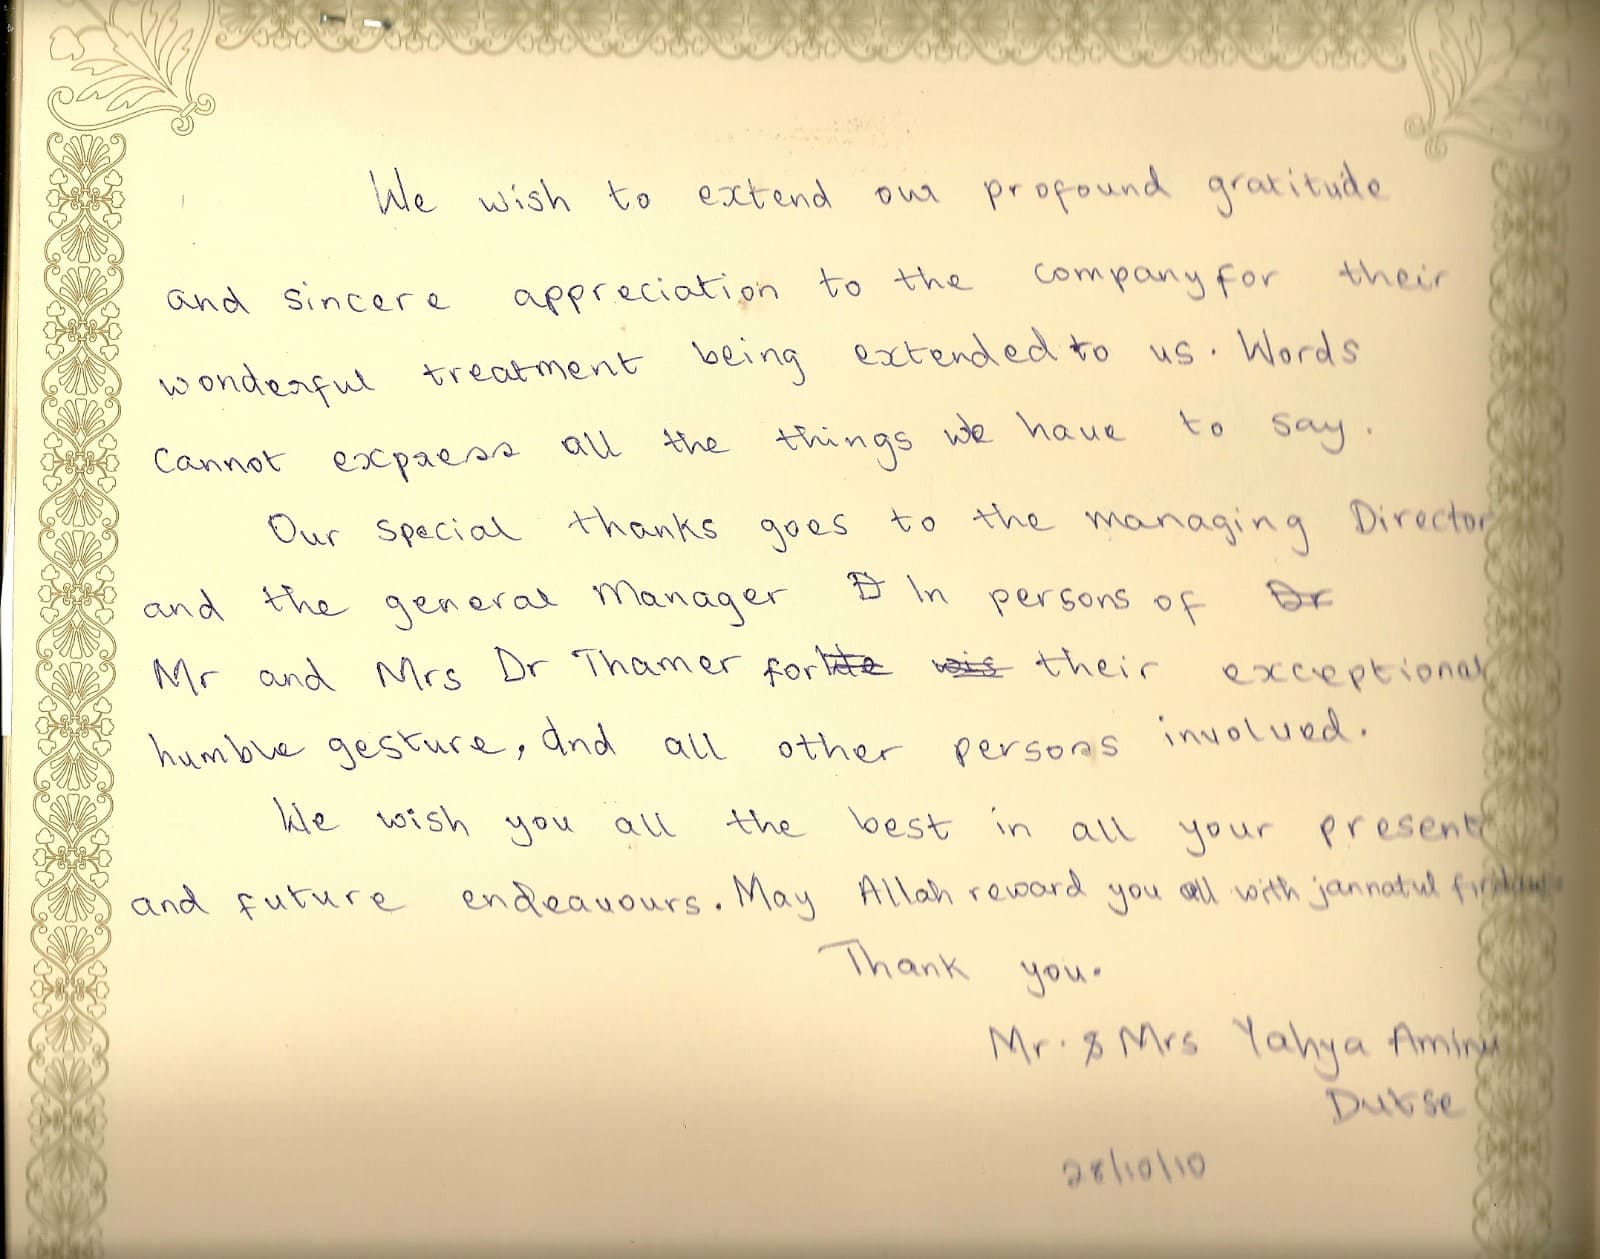 We wish to extend our profound gratitude
and sincere appreciation to the company for their
wonderful treatment being extended to us. Words
Cannot express all the things we have to say.
Our special thanks goes to the managing Director
and the general Manager In persons of Dr
Mr and Mrs Dr Thamer for their exceptional
humble gesture, And all other persons involved.
We wish you all the best in all your present
and future endeavours. May Allah reward you all with jannatul firdaus
Thank you.
Mr. & Mrs Yahya Aminu
Dutse
28/10/10